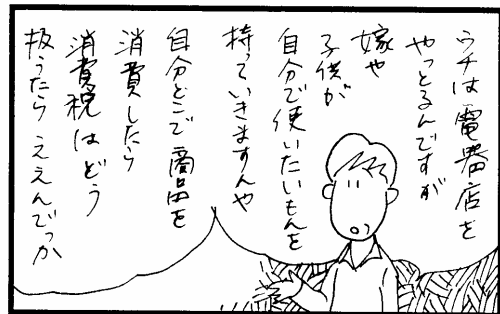 ウチは電器店を
やっとるんですが
嫁や
子供が
自分で使いたいもんを
持っていきますんや
自分とこで商品を
消費したら
消費税はどう
扱うたらええんでっか